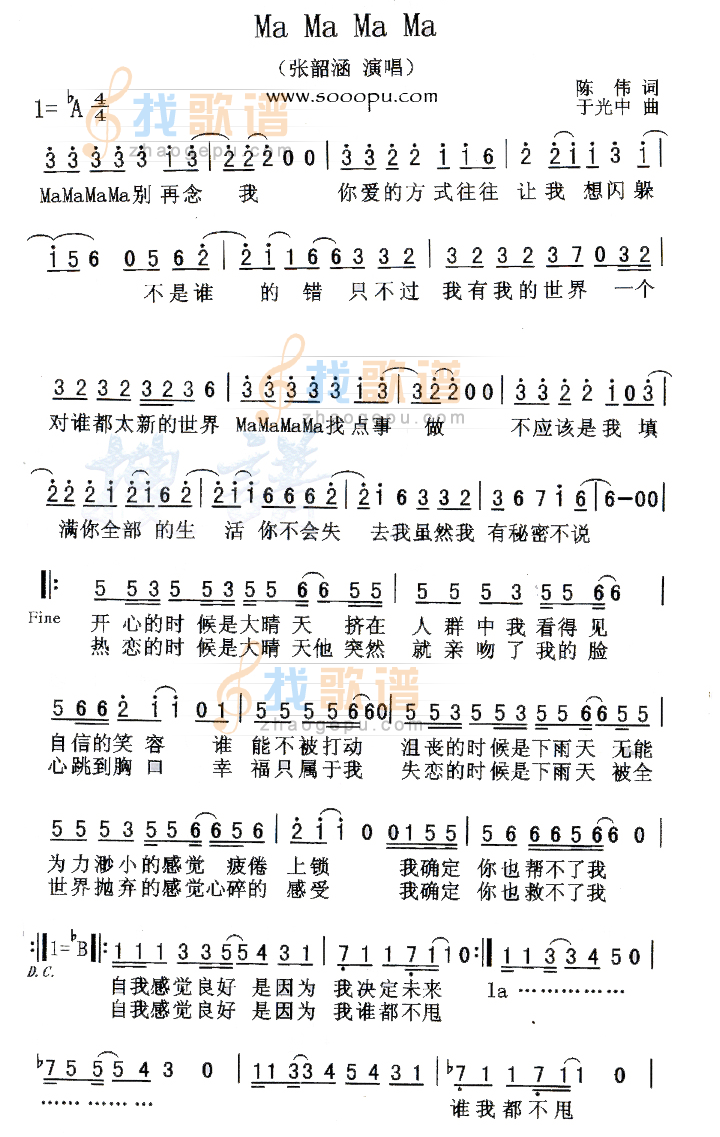 Ma Ma Ma Ma
(张韶涵 演唱)
www.sooopu.com
陈 伟 词
于光中 曲
1=♭A 4/4
找歌谱
zhaogepu.com
3 3 3 3 3 1 3 | 2 2 2 0 0 | 3 3 2 2 1 1 6 | 2 2 1 1 3 1 |
MaMaMaMa别再念 我 你爱的方式往往 让我 想闪躲
1 5 6 0 5 6 2 | 2 1 1 6 6 3 3 2 | 3 2 3 2 3 7 0 3 2 |
不是谁 的 错 只不过 我有我的世界 一个
找歌谱
zhaogepu.com
3 2 3 2 3 2 3 6 | 3 3 3 3 3 1 3 | 3 2 2 0 0 | 3 3 2 2 1 0 3 |
对谁都太新的世界 MaMaMaMa找点事 做 不应该是我 填
2 2 2 1 2 1 6 2 | 2 1 1 6 6 6 2 | 2 1 6 3 3 2 | 3 6 7 1 6 | 6 - 0 0 |
满你全部 的生 活 你不会失 去我虽然我 有秘密不说
Fine
5 5 3 5 5 3 5 5 6 6 5 5 | 5 5 5 3 5 5 6 6 |
开心的时 候是大晴天 挤在 人群中我看得见
热恋的时 候是大晴天他突然 就亲吻了我的脸
找歌谱
zhaogepu.com
5 6 6 2 1 1 0 1 | 5 5 5 5 5 6 6 0 | 5 5 3 5 5 3 5 5 6 6 5 5 |
自信的笑容 谁 能不被打动 沮丧的时候是下雨天 无能
心跳到胸口 幸 福只属于我 失恋的时候是下雨天 被全
5 5 5 3 5 5 6 6 5 6 | 2 1 1 0 0 1 5 5 | 5 6 6 5 6 6 0 |
为力渺小的感觉 疲倦 上锁 我确定 你也帮不了我
世界抛弃的感觉心碎的 感受 我确定 你也救不了我
D.C.
1=♭B 1 1 1 3 3 5 5 4 3 1 | 7 1 1 7 1 1 0 | 1 1 3 3 4 5 0 |
自我感觉良好 是因为 我决定未来 la ……………
自我感觉良好 是因为 我谁都不甩
♭7 5 5 5 4 3 0 | 1 1 3 3 4 5 4 3 1 | ♭7 1 1 7 1 1 0 |
…… …… ……
谁我都不甩